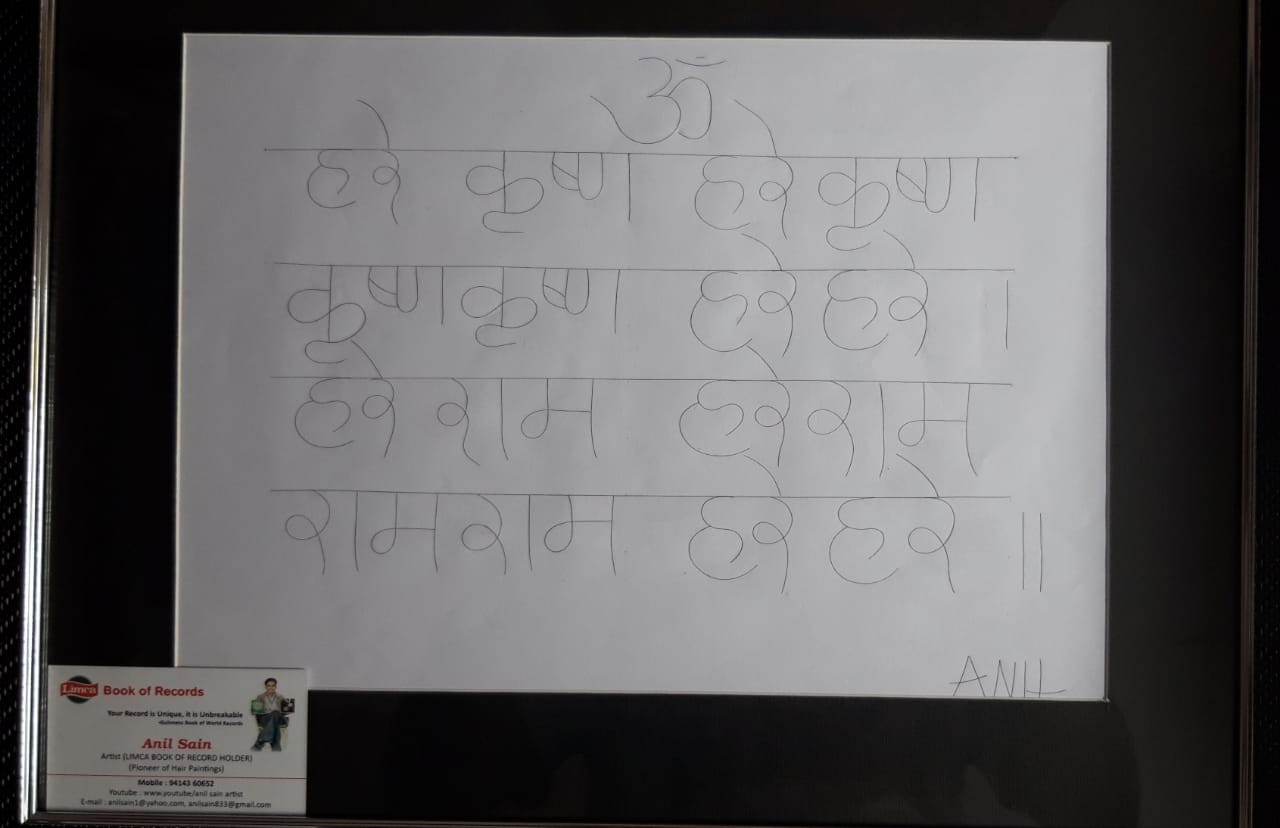 ॐ
हरे कृष्ण हरे कृष्ण
कृष्ण कृष्ण हरे हरे ।
हरे राम हरे राम
राम राम हरे हरे ॥
ANIL
Limca Book of Records
Your Record is Unique, it is Unbreakable
-Guinness Book of World Records
Anil Sain
Artist (LIMCA BOOK OF RECORD HOLDER)
(Pioneer of Hair Paintings)
Mobile : 94143 60652
Youtube : www.youtube/anil sain artist
E-mail : anilsain1@yahoo.com, anilsain833@gmail.com